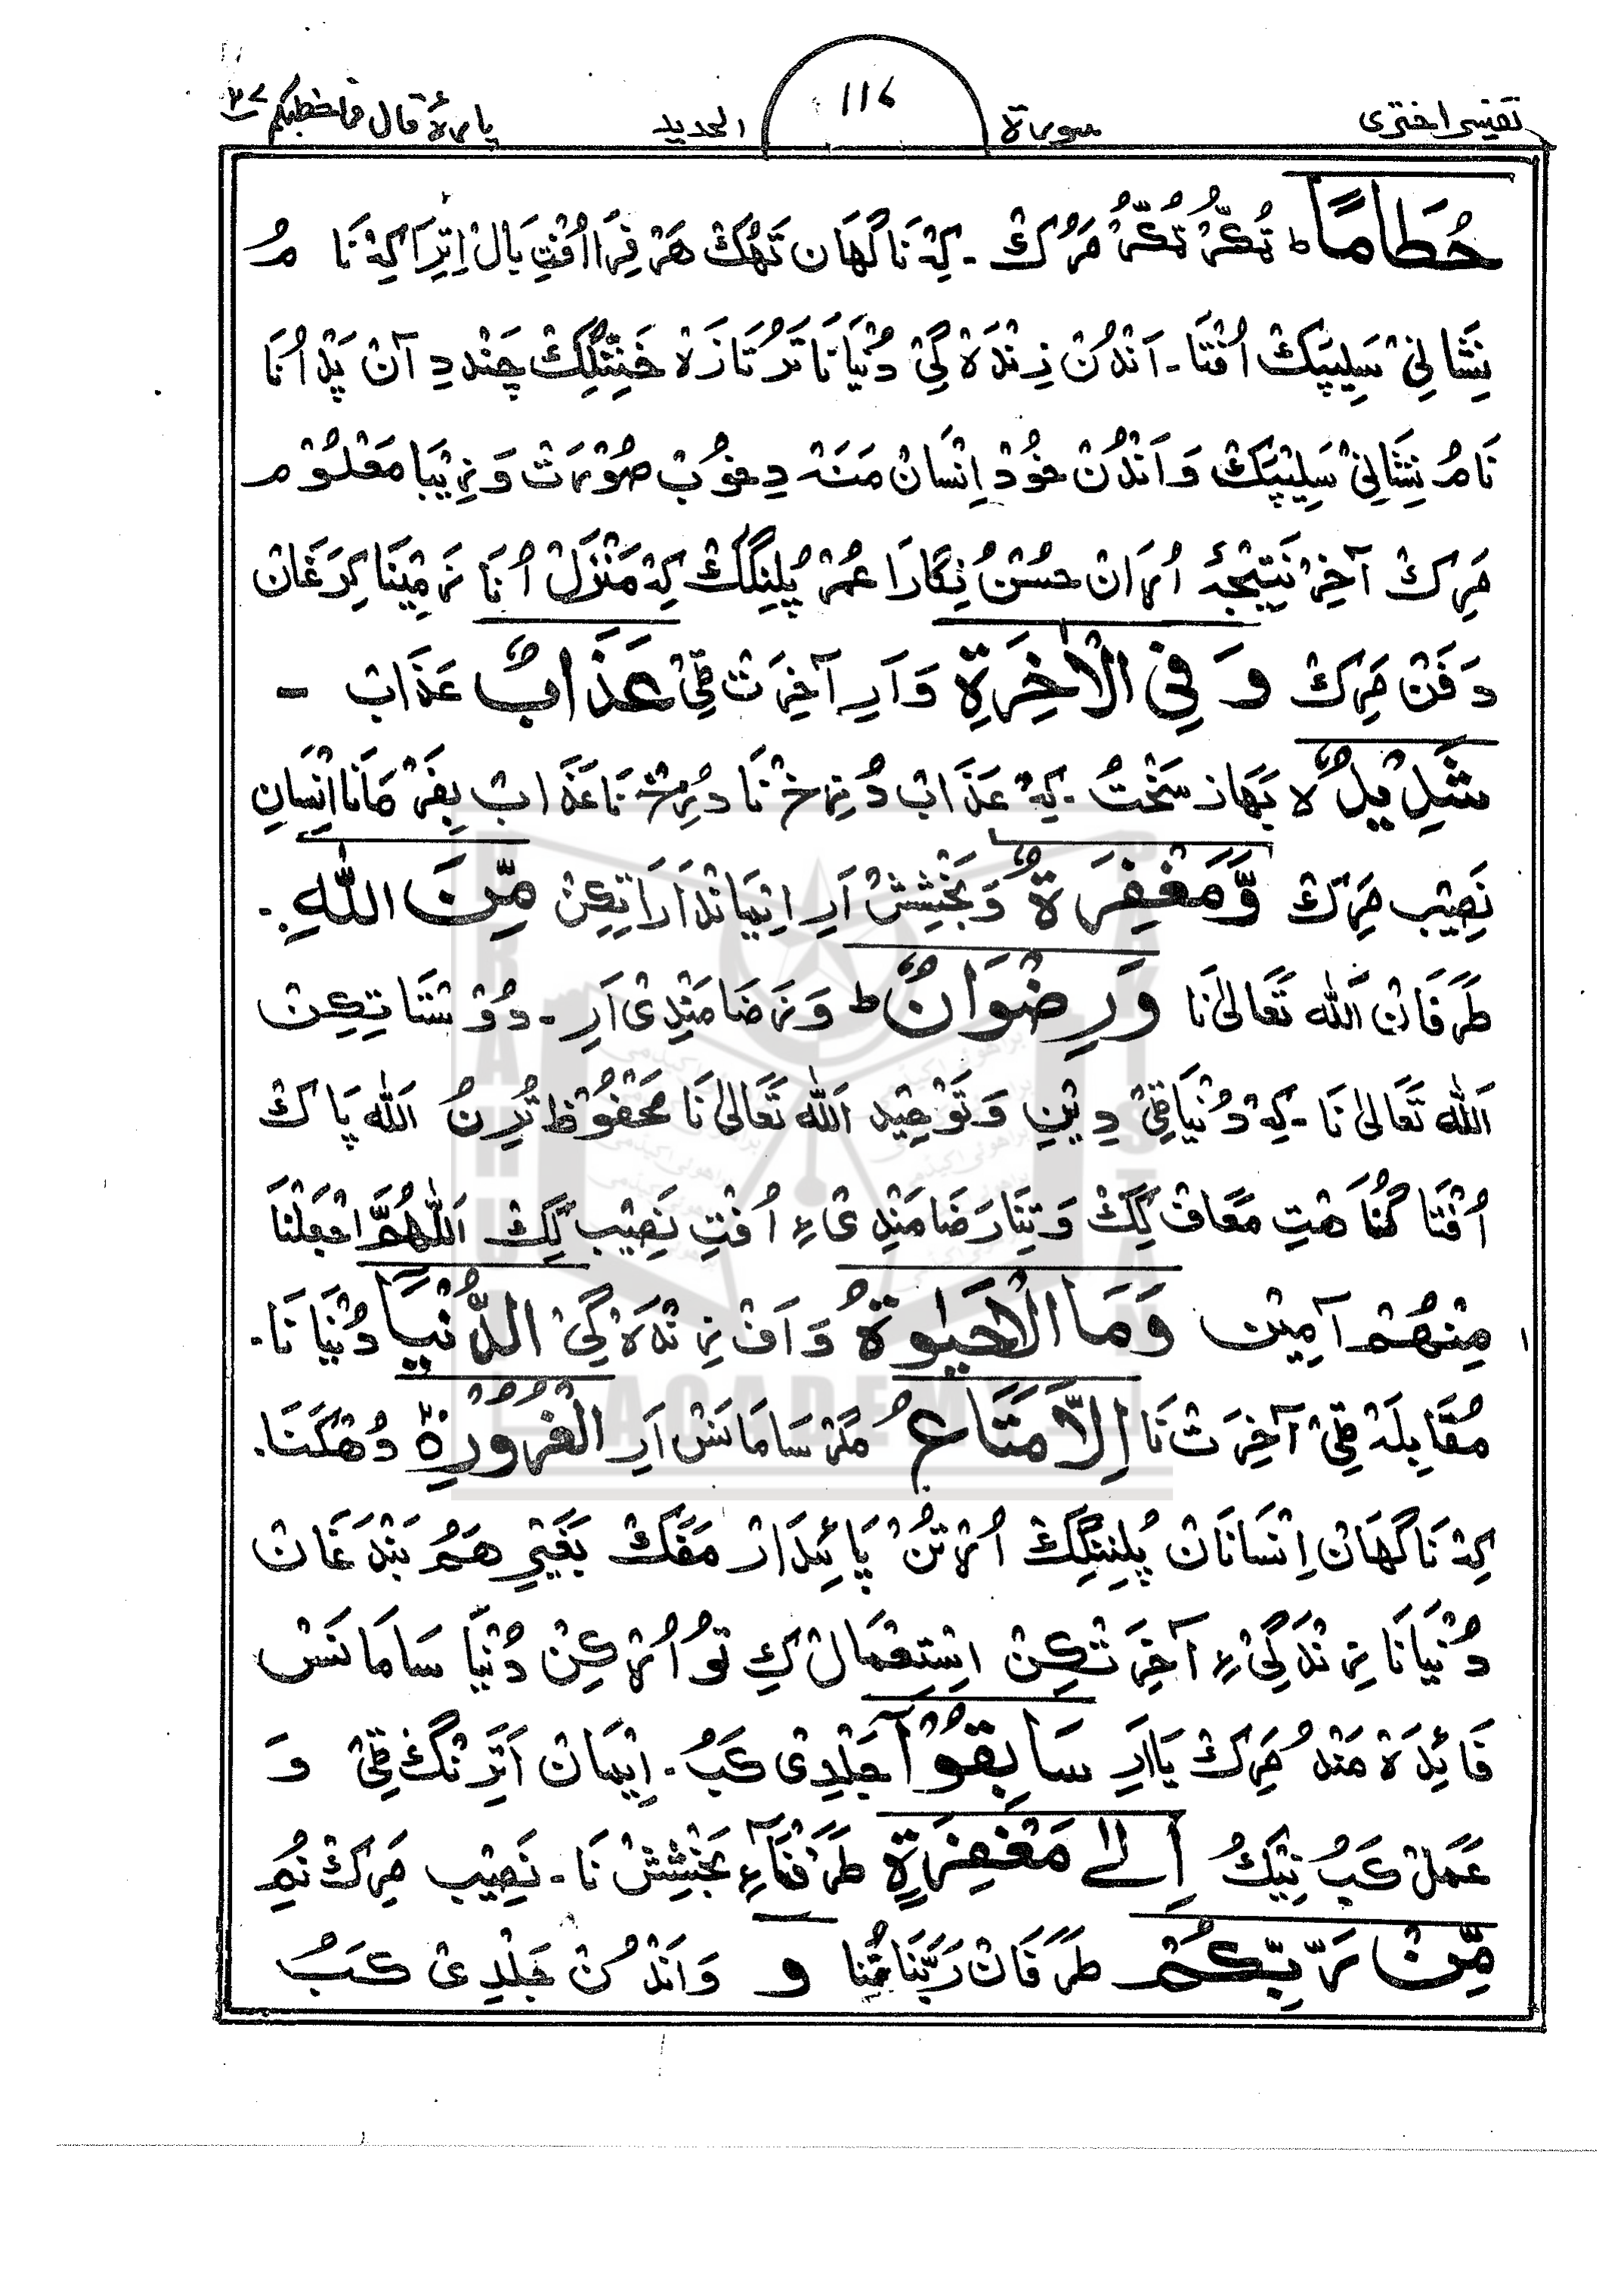 تفسیر اختری سورة ۱۱۷ الحدید پارۂ قال فما خطبکم ۲۷
حُطَامًا ط تُکّرْ تُکّرْ مَرُکْ - کِہْ نَا گَهَان تَهُکْ هَرْ فِرَا اُفْتِ بَالْ اِتِرَا کِہْ نَا مُ
نِشَانِیْ سَلِیپَکْ اُفْتَا - اَنْدُنْ زِنْدَہ گِیْ دُنْیَا نَا تَرُ تَازَہ خَنِنْگِکْ چَنْد دِ آنْ پَدْ اُنَا
نَامُ نِشَانِیْ سَلِیْپَکْ وَ اَنْدُنْ خُوْد اِنْسَانْ مَنَہ دِ خُوْبْ صُوْرَتْ وَ زِیْبَا مَعْلُوْم
مَرِکْ آخِرْ نَتِیْجَہ اُرَانْ حُسْنُ نِگَارَا عُمْر پُلِنِگِکْ کِہْ مَنْزِلْ اُنَا زَمِیْنَا کِرَغَانْ
دَفَنْ مَرِکْ وَ فِی الْاٰخِرَۃِ وَ اَرِ آخِرَتْ ٹِیْ عَذَابٌ عَذَابْ -
شَدِیْدٌ لا بَهَاز سَخْتُ - کِہْ عَذَابْ دُزَخْ نَا دِرِخْ نَا عَذَابْ بِفَرْمَانَا اِنْسَانِ
نَصِیْب مَرِکْ وَّمَغْفِرَۃٌ وَ بَخْشِشْ اَرِ اِیْمَانْدَارَاتِکِنْ مِّنَ اللّٰہِ
طَرَفَانْ اَللّٰہ تَعَالیٰ نَا وَرِضْوَانٌ ط وَ رَضَامَنْدِیْ اَرِ - دُوْشْتَاتِکِنْ
اَللّٰہ تَعَالیٰ نَا - کِہْ دُنْیَا ٹِیْ دِیْنِ وَ تَوْحِیْدِ اَللّٰہ تَعَالیٰ نَا مَحْفُوْظ تُرِنُ اَللّٰہ پَاکْ
اُفْتَا گُنَاهَتِ مَعَافْ کِکْ وَ تِنَا رَضَامَنْدِیْ ءِ اُفْتِ نَصِیْب کِکْ اَللّٰهُمَّ اجْعَلْنَا
مِنْهُمْ آمِیْن وَمَا الْحَیٰوۃُ وَ اَفْ زِنْدَہ گِیْ الدُّنْیَا دُنْیَا نَا -
مُقَابِلَہ ٹِیْ آخِرَتْ نَا اِلَّا مَتَاعُ مَگَرْ سَامَانَسْ اَرِ الْغُرُوْرِ دُهْکَنَا -
کِہْ نَا گَهَانْ اِنْسَانَانْ پُلِنِنْگِکْ اُرْتُنْ پَائِیْدَارْ مَفَکْ بَغَیْرِ هَمُ بَنْدَغَانْ
دُنْیَا نَا زِنْدَگِیْ ءِ آخِرَتْکِنْ اِسْتِعْمَالْ کِ تُو اُرْکِنْ دُنْیَا سَامَانَسْ
فَائِدَہ مَنْدُ مَرِکْ یَا اَرِ سَابِقُوْا جَلْدِیْ کَبُ - اِیْمَانْ اَتَرِنْگْ ٹِیْ وَ
عَمَلْ کَبُ نِیْکُ اِلٰی مَغْفِرَۃٍ طَرَفَاءِ بَخْشِشْ نَا - نَصِیْب مَرِکْ نُمِ
مِّنْ رَّبِّکُمْ طَرَفَانْ رَبَّنَا نُمْنَا و وَ اَنْدُنْ جَلْدِیْ کَبُ
BRAHUI ACADEMY